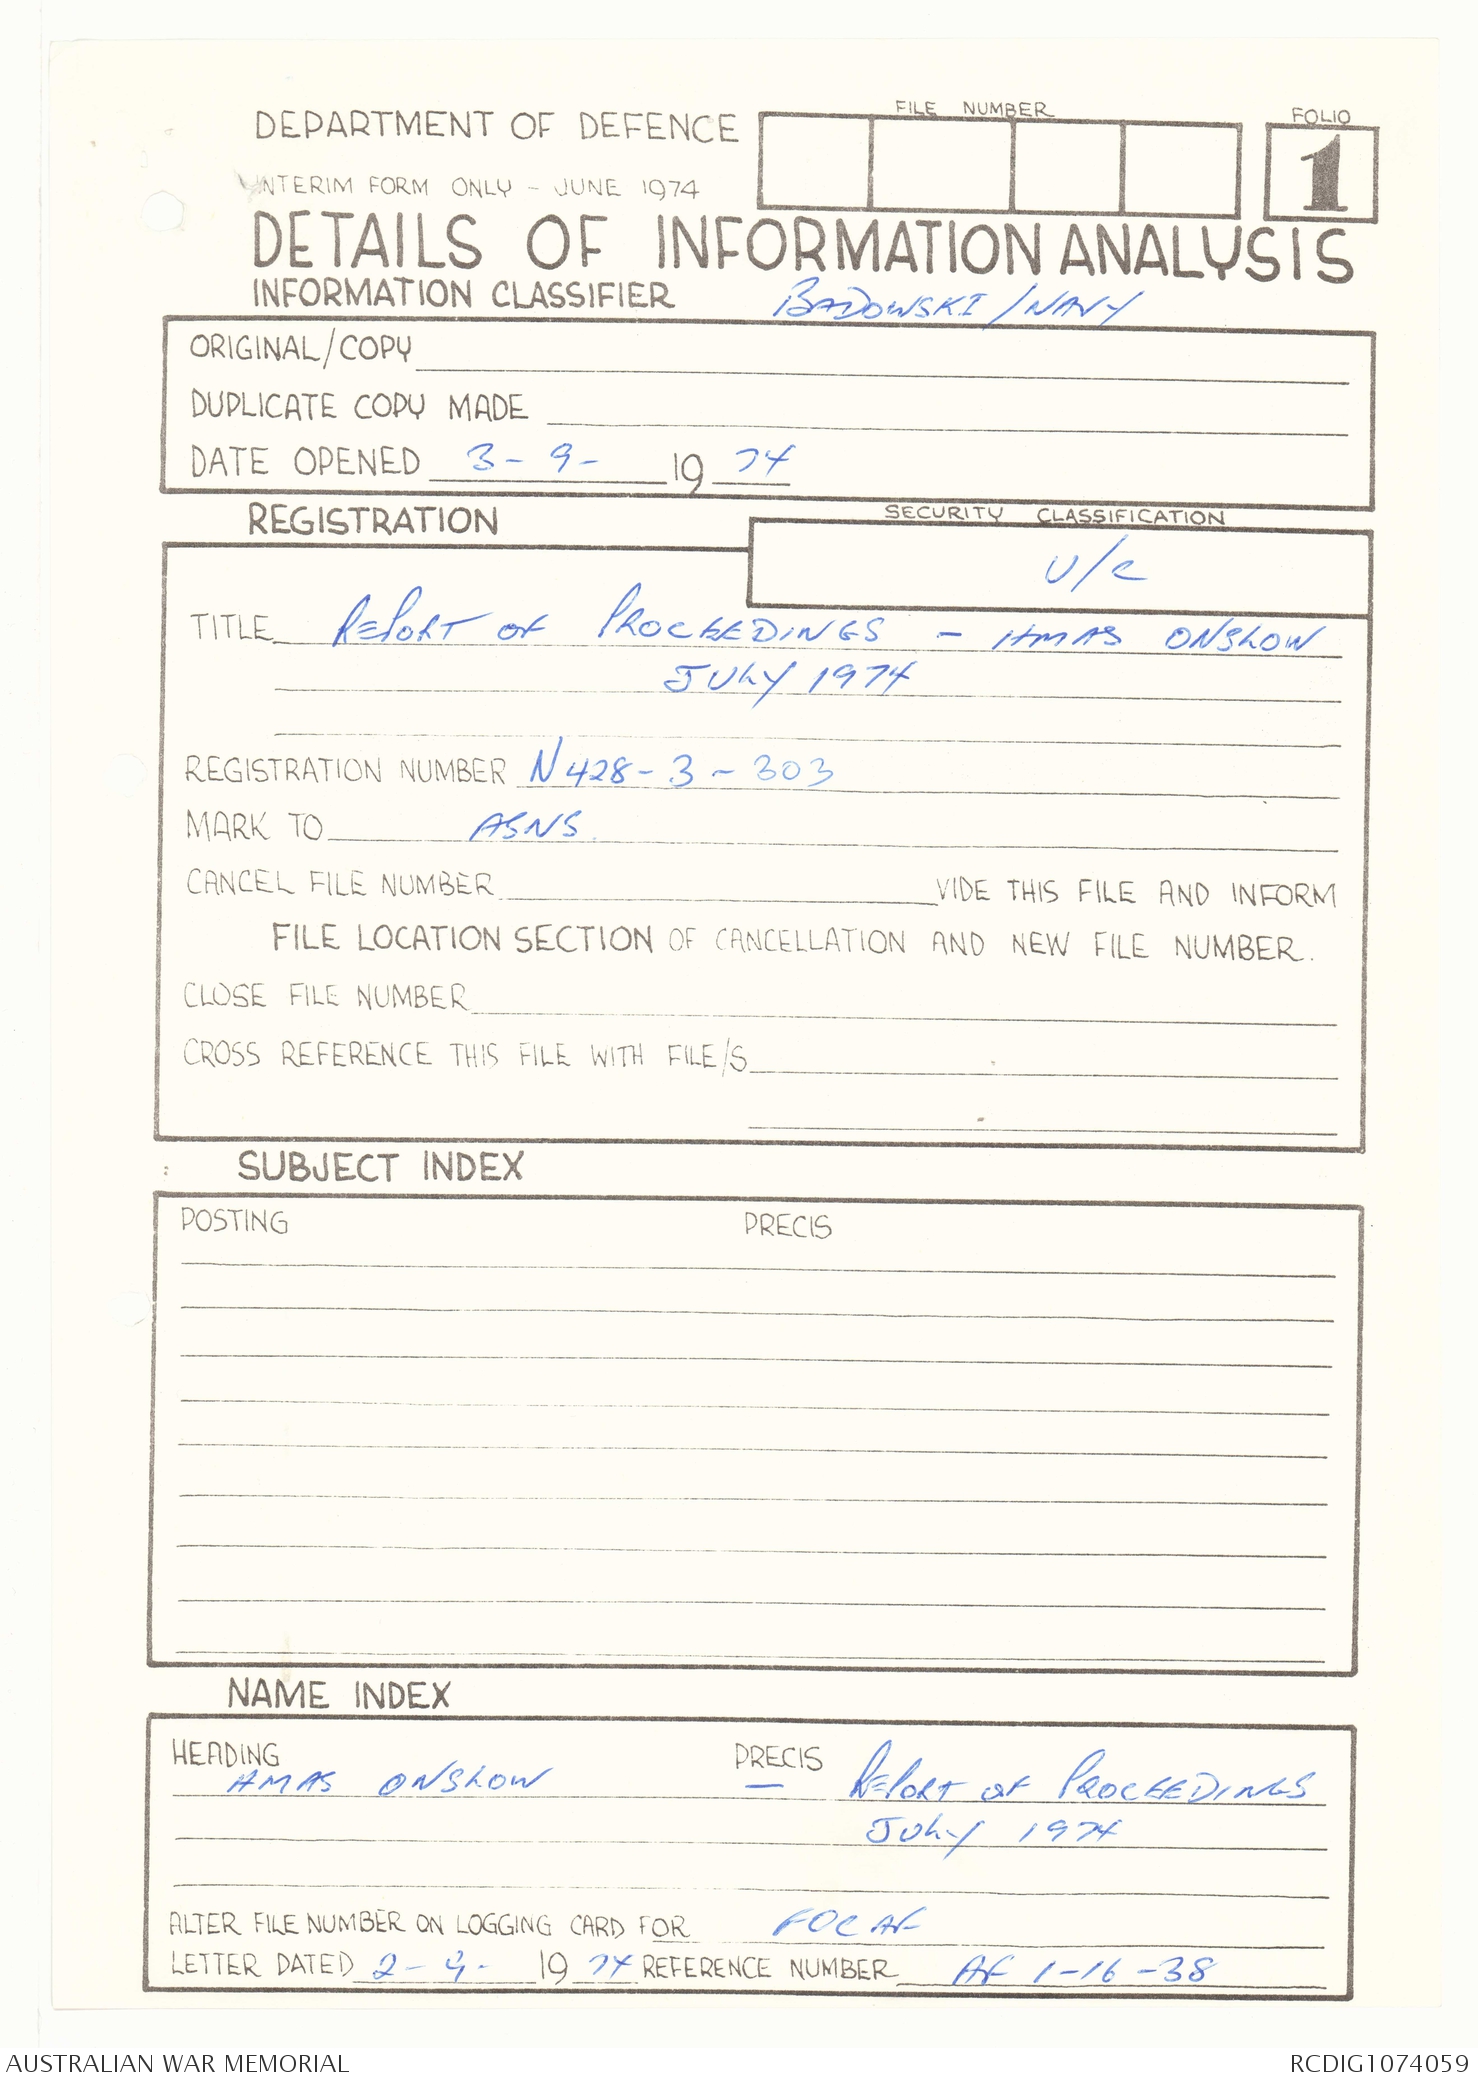 DEPARTMENT OF DEFENCE
FILE NUMBER
FOLIO
1
INTERIM FORM ONLY - JUNE 1974
DETAILS OF INFORMATION ANALYSIS
INFORMATION CLASSIFIER BADOWSKI/NAVY
ORIGINAL/COPY
DUPLICATE COPY MADE
DATE OPENED 3-9- 1974
REGISTRATION
SECURITY CLASSIFICATION
U/C
TITLE REPORT OF PROCEEDINGS - HMAS ONSLOW
JULY 1974
REGISTRATION NUMBER N428-3-303
MARK TO ASNS.
CANCEL FILE NUMBER VIDE THIS FILE AND INFORM
FILE LOCATION SECTION OF CANCELLATION AND NEW FILE NUMBER.
CLOSE FILE NUMBER
CROSS REFERENCE THIS FILE WITH FILE/S
SUBJECT INDEX
POSTING PRECIS
NAME INDEX
HEADING PRECIS
HMAS ONSLOW - REPORT OF PROCEEDINGS
JULY 1974
ALTER FILE NUMBER ON LOGGING CARD FOR FOCAF
LETTER DATED 2-9- 1974 REFERENCE NUMBER AF 1-16-38
AUSTRALIAN WAR MEMORIAL
RCDIG1074059